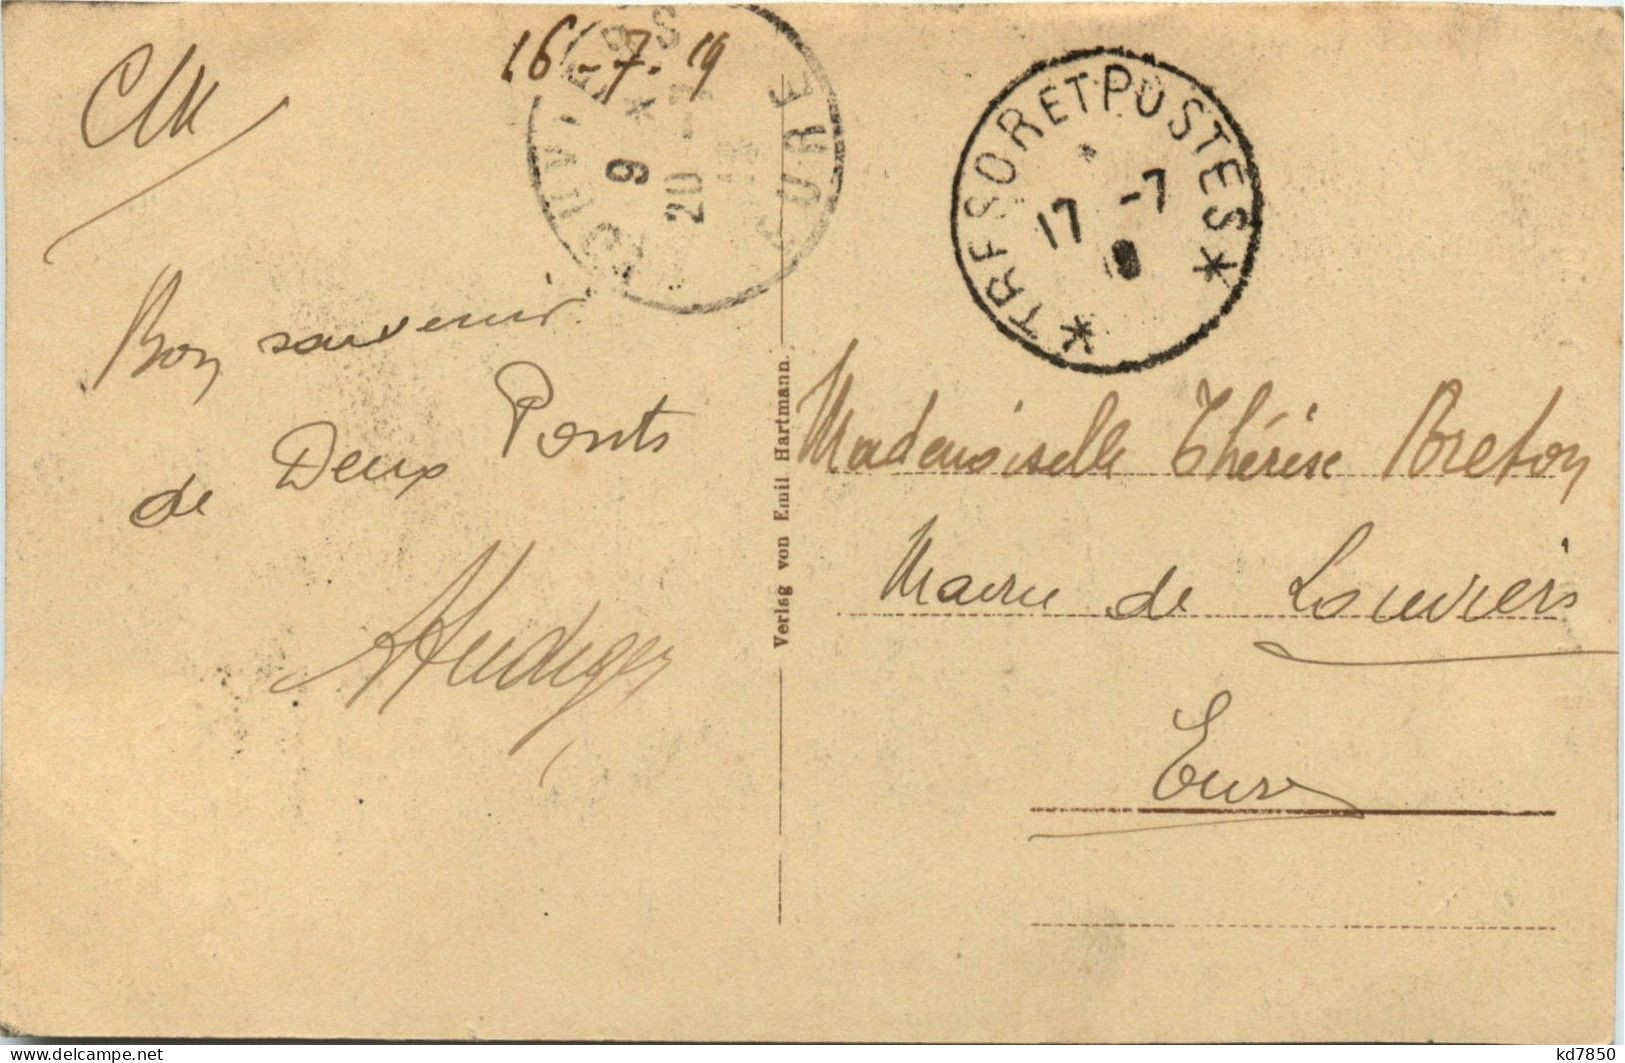 16-7-19
Bon souvenir
de Deux Ponts
LOUVIERS
EURE
9 *
20 -7
Verlag von Emil Hartmann.
* TRESOR ET POSTES *
17 -7
Mademoiselle Thérèse Breton
Mairie de Louviers
Eure
kd7850